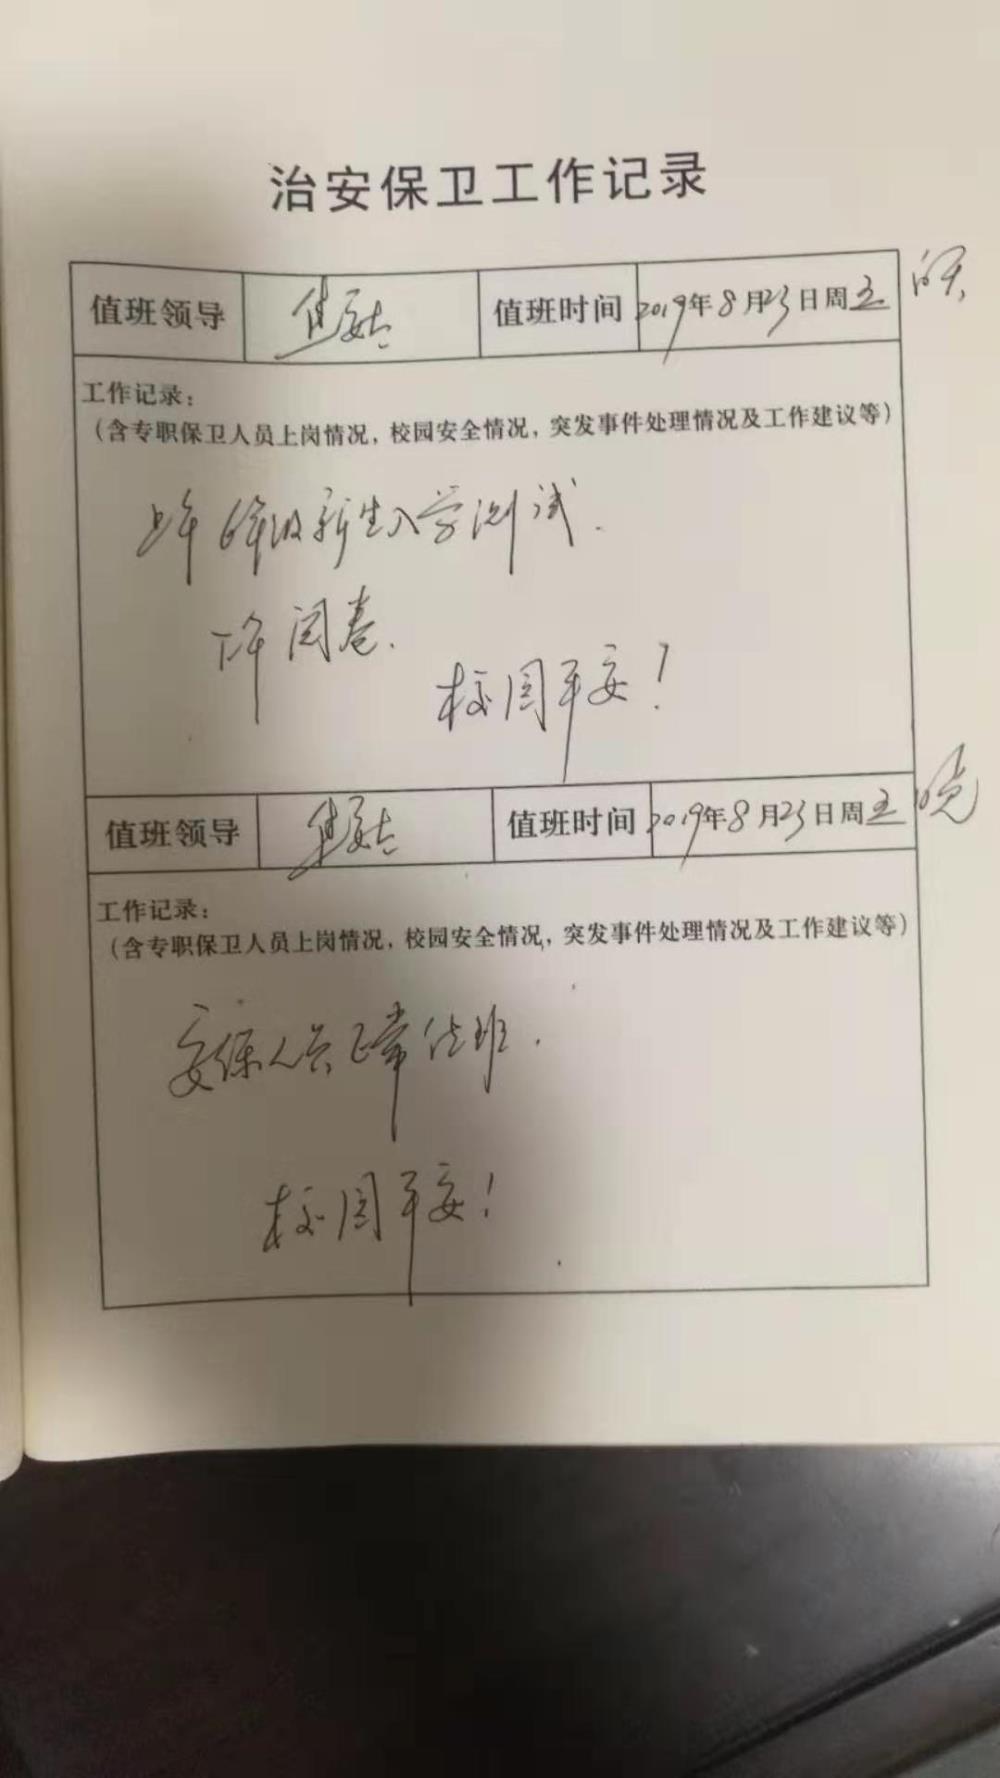 治安保卫工作记录
值班领导 值班时间 2019年8月23日周五 白天
工作记录：
（含专职保卫人员上岗情况，校园安全情况，突发事件处理情况及工作建议等）
上午 年级新生入学测试.
下午 阅卷.
校园平安！
值班领导 值班时间 2019年8月23日周五 晚
工作记录：
（含专职保卫人员上岗情况，校园安全情况，突发事件处理情况及工作建议等）
安保人员正常值班.
校园平安！